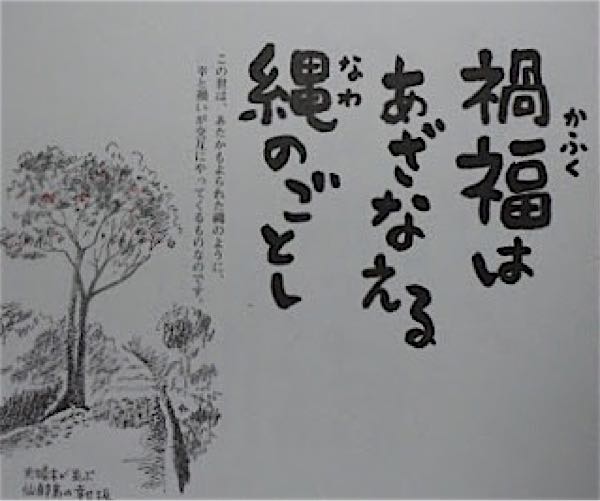 禍福は
かふく
あざなえる
縄のごとし
なわ
この世は、あたかもよられた縄のように、
幸と禍いが交互にやってくるものなのです。